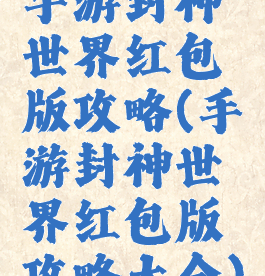 手游封神
世界红包
版攻略(手
游封神世
界红包版
攻略大全)